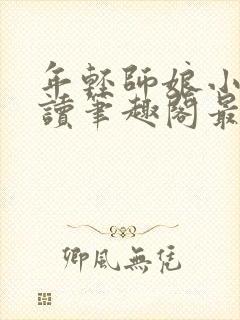 年輕師娘小
讀筆趣閣最
卿風無恁